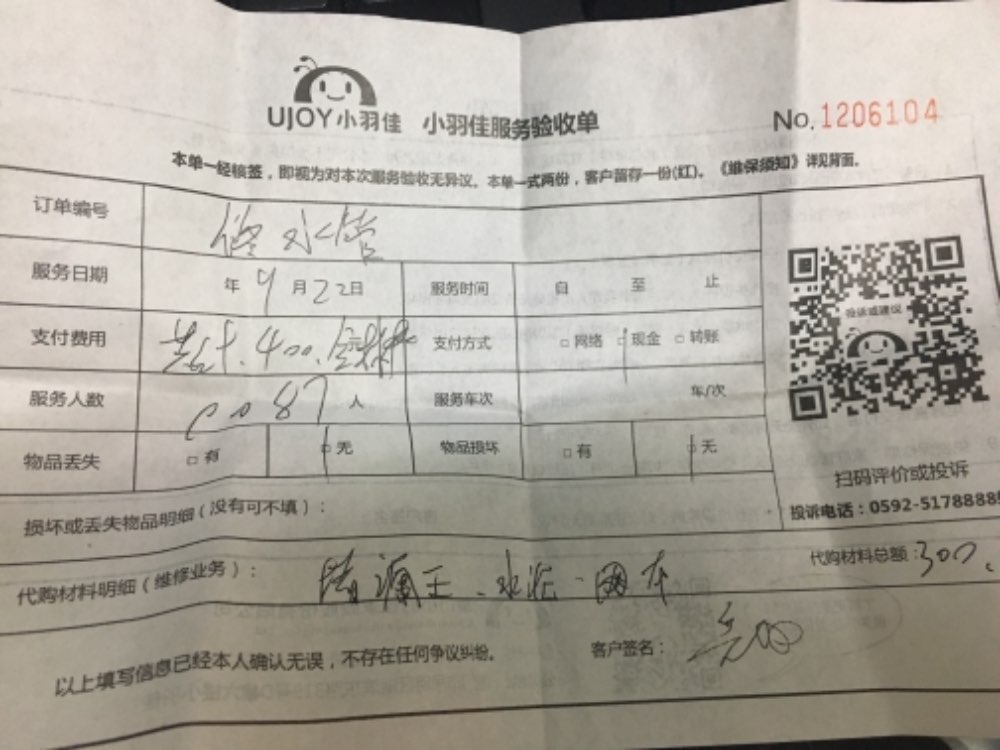 UJOY小羽佳 小羽佳服务验收单 No. 1206104
本单一经核签，即视为对本次服务验收无异议。本单一式两份，客户留存一份(红)。《维保须知》详见背面。
订单编号 修水管
服务日期 年 9 月 22 日 服务时间 自 至 止
支付费用 400. 元 支付方式 □ 网络 □ 现金 □ 转账
投诉或建议
服务人数 人 服务车次 车/次
物品丢失 □ 有 □ 无 物品损坏 □ 有 □ 无
扫码评价或投诉
损坏或丢失物品明细（没有可不填）：
投诉电话：0592-5178888
代购材料明细（维修业务）： 水泥 代购材料总额：300
以上填写信息已经本人确认无误，不存在任何争议纠纷。 客户签名：